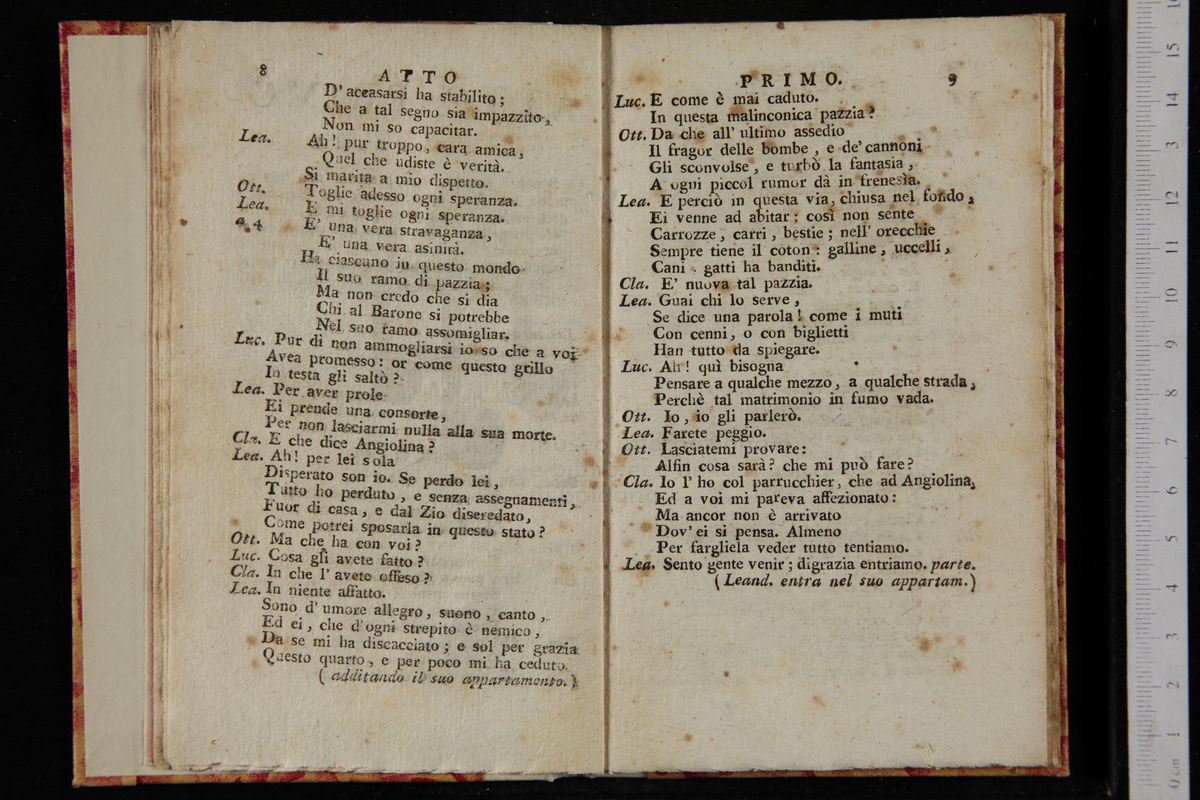 8
ATTO
D' accasarsi ha stabilito;
Che a tal segno sia impazzito,
Non mi so capacitar.
Lea. Ah! pur troppo, cara amica,
Quel che udiste è verità.
Si marita a mio dispetto.
Ott. Toglie adesso ogni speranza.
Lea. E mi toglie ogni speranza.
a 4 E' una vera stravaganza,
E' una vera asinità.
Ha ciascuno in questo mondo
Il suo ramo di pazzia;
Ma non credo che si dia
Chi al Barone si potrebbe
Nel suo ramo assomigliar.
Luc. Pur di non ammogliarsi io so che a voi
Avea promesso: or come questo grillo
In testa gli saltò?
Lea. Per aver prole
Ei prende una consorte,
Per non lasciarmi nulla alla sua morte.
Cla. E che dice Angiolina?
Lea. Ah! per lei sola
Disperato son io. Se perdo lei,
Tutto ho perduto, e senza assegnamenti,
Fuor di casa, e dal Zio diseredato,
Come potrei sposarla in questo stato?
Ott. Ma che ha con voi?
Luc. Cosa gli avete fatto?
Cla. In che l' avete offeso?
Lea. In niente affatto.
Sono d' umore allegro, suono, canto,
Ed ei, che d'ogni strepito è nemico,
Da se mi ha discacciato; e sol per grazia
Questo quarto, e per poco mi ha ceduto.
( additando il suo appartamento.)
PRIMO.
9
Luc. E come è mai caduto.
In questa malinconica pazzia?
Ott. Da che all' ultimo assedio
Il fragor delle bombe, e de' cannoni
Gli sconvolse, e turbò la fantasia,
A ogni piccol rumor dà in frenesìa.
Lea. E perciò in questa via, chiusa nel fondo,
Ei venne ad abitar; così non sente
Carrozze, carri, bestie; nell' orecchie
Sempre tiene il coton: galline, uccelli,
Cani, gatti ha banditi.
Cla. E' nuova tal pazzia.
Lea. Guai chi lo serve,
Se dice una parola! come i muti
Con cenni, o con biglietti
Han tutto da spiegare.
Luc. Ah! quì bisogna
Pensare a qualche mezzo, a qualche strada,
Perchè tal matrimonio in fumo vada.
Ott. Io, io gli parlerò.
Lea. Farete peggio.
Ott. Lasciatemi provare:
Alfin cosa sarà? che mi può fare?
Cla. Io l' ho col parrucchier, che ad Angiolina,
Ed a voi mi pareva affezionato:
Ma ancor non è arrivato
Dov' ei si pensa. Almeno
Per fargliela veder tutto tentiamo.
Lea. Sento gente venir; digrazia entriamo. parte.
(Leand. entra nel suo appartam.)
0 cm 1 2 3 4 5 6 7 8 9 10 11 12 13 14 15 16